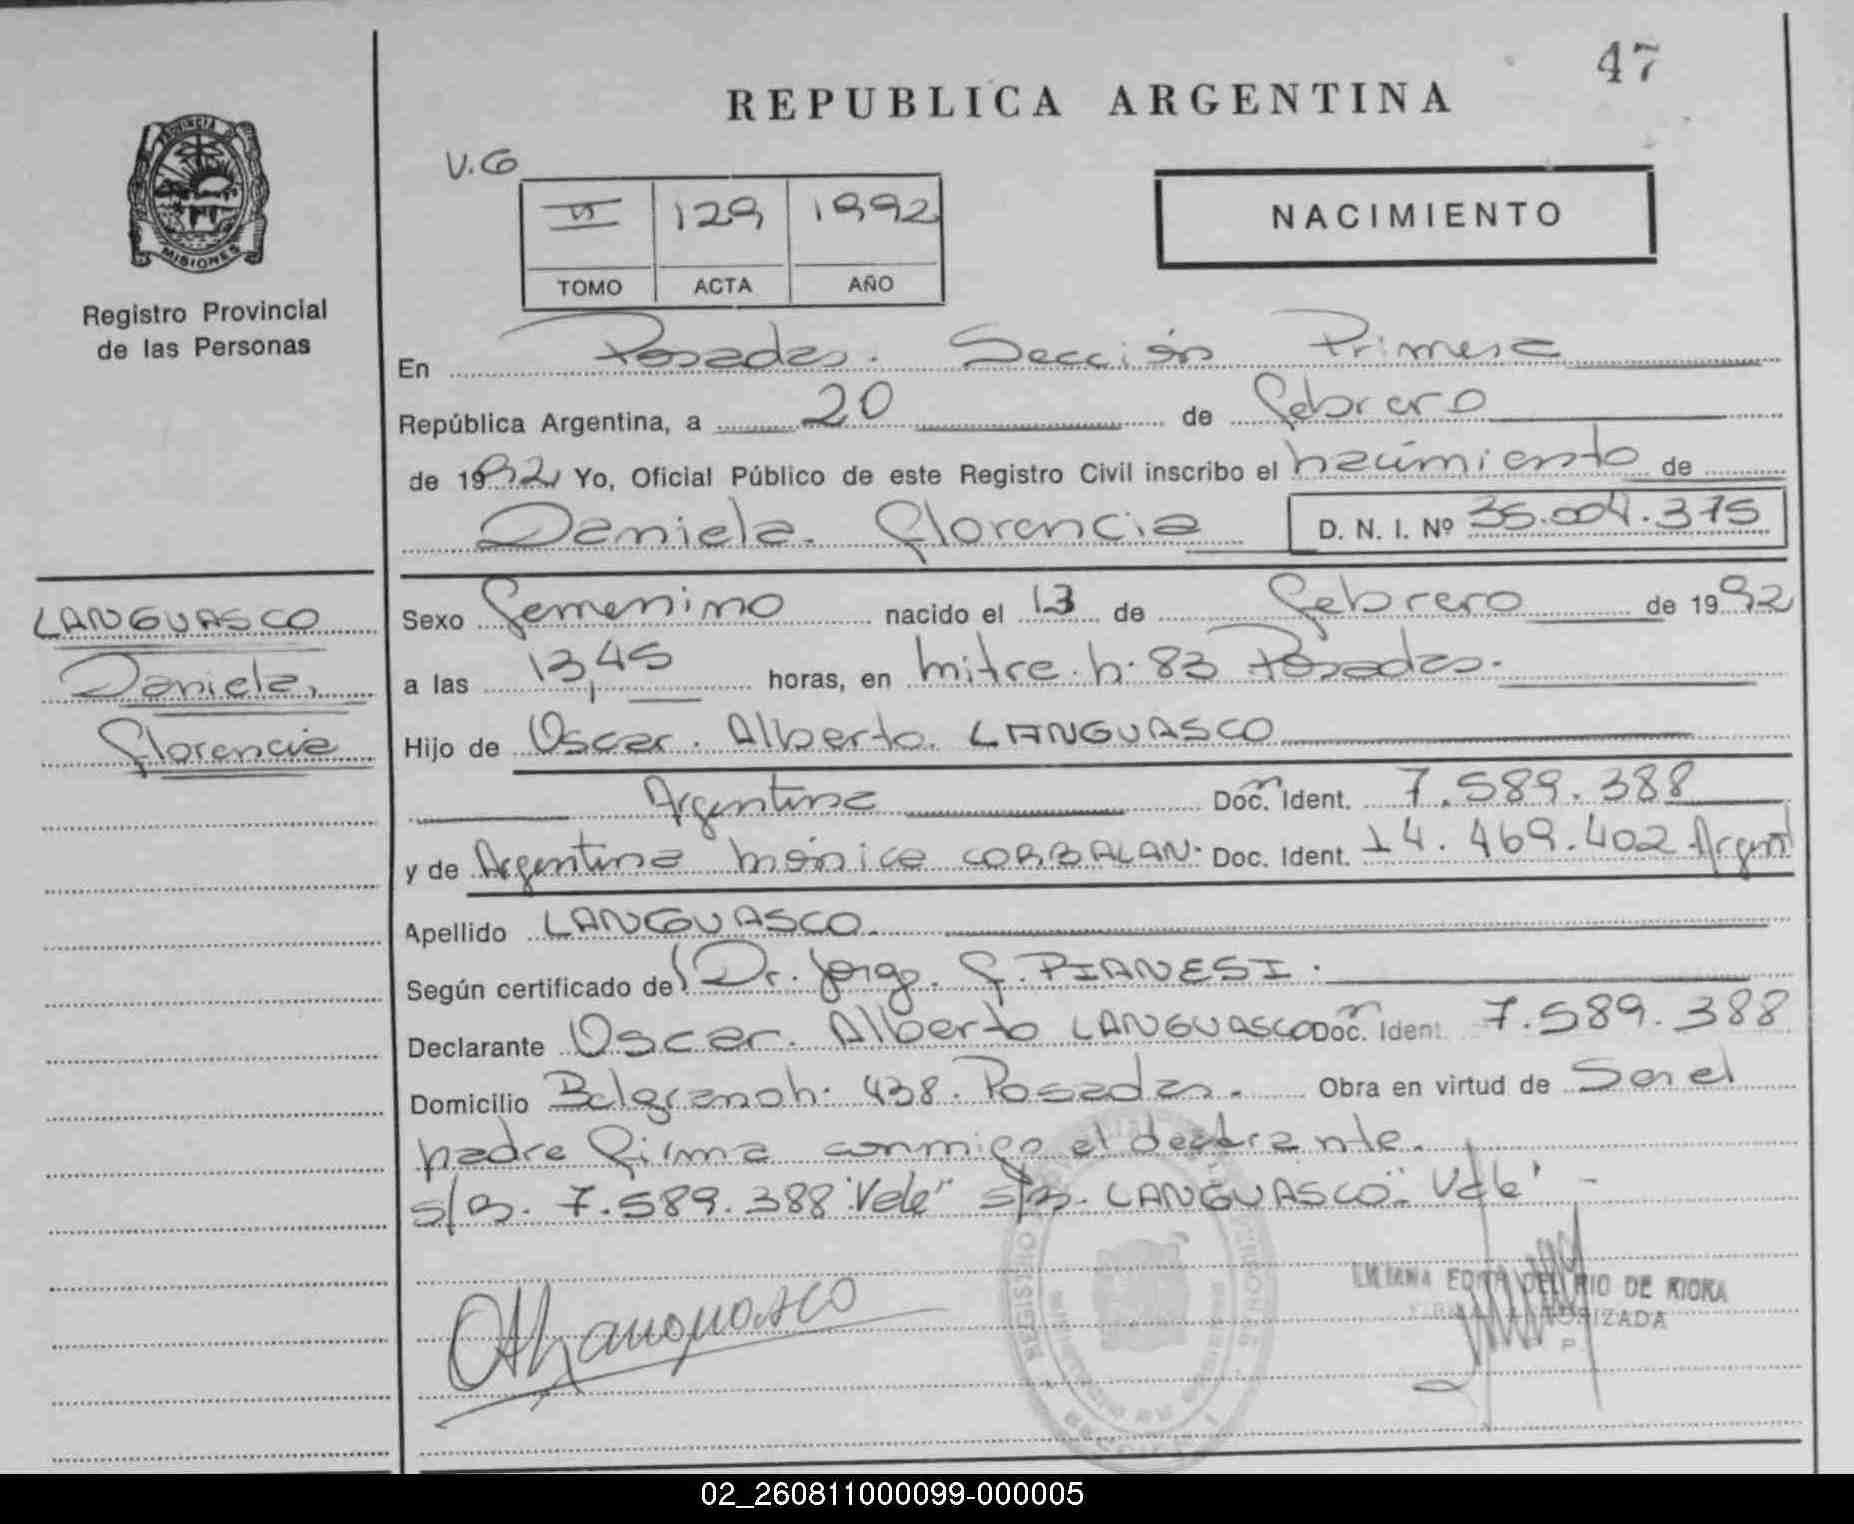 47
REPUBLICA ARGENTINA
PROVINCIA D
MISIONES
Registro Provincial
de las Personas
V.G
VI 129 1992
TOMO ACTA AÑO
NACIMIENTO
En Posadas. Sección Primera
República Argentina, a 20 de febrero
de 1992 Yo, Oficial Público de este Registro Civil inscribo el nacimiento de
Daniela. Florencia D. N. I. Nº 35.004.375
LANGUASCO
Daniela,
Florencia
Sexo femenino nacido el 13 de febrero de 1992
a las 13,45 horas, en mitre. h. 83 Posadas.
Hijo de Oscar. Alberto. LANGUASCO
Argentina Doc. Ident. 7.589.388
y de Argentina mónica CORBALAN. Doc. Ident. 14.469.402 Argent
Apellido LANGUASCO.
Según certificado de Dr. Jorge. F. PIANESI.
Declarante Oscar. Alberto LANGUASCO Doc. Ident. 7.589.388
Domicilio Belgrano h. 438. Posadas. Obra en virtud de Ser el
padre firma conmigo el declarante.
s/B. 7.589.388 "Vale" s/B. LANGUASCO" Vale" -
OALanguasco
LILIANA EDITH DEL RIO DE RIOKA
02_260811000099-000005